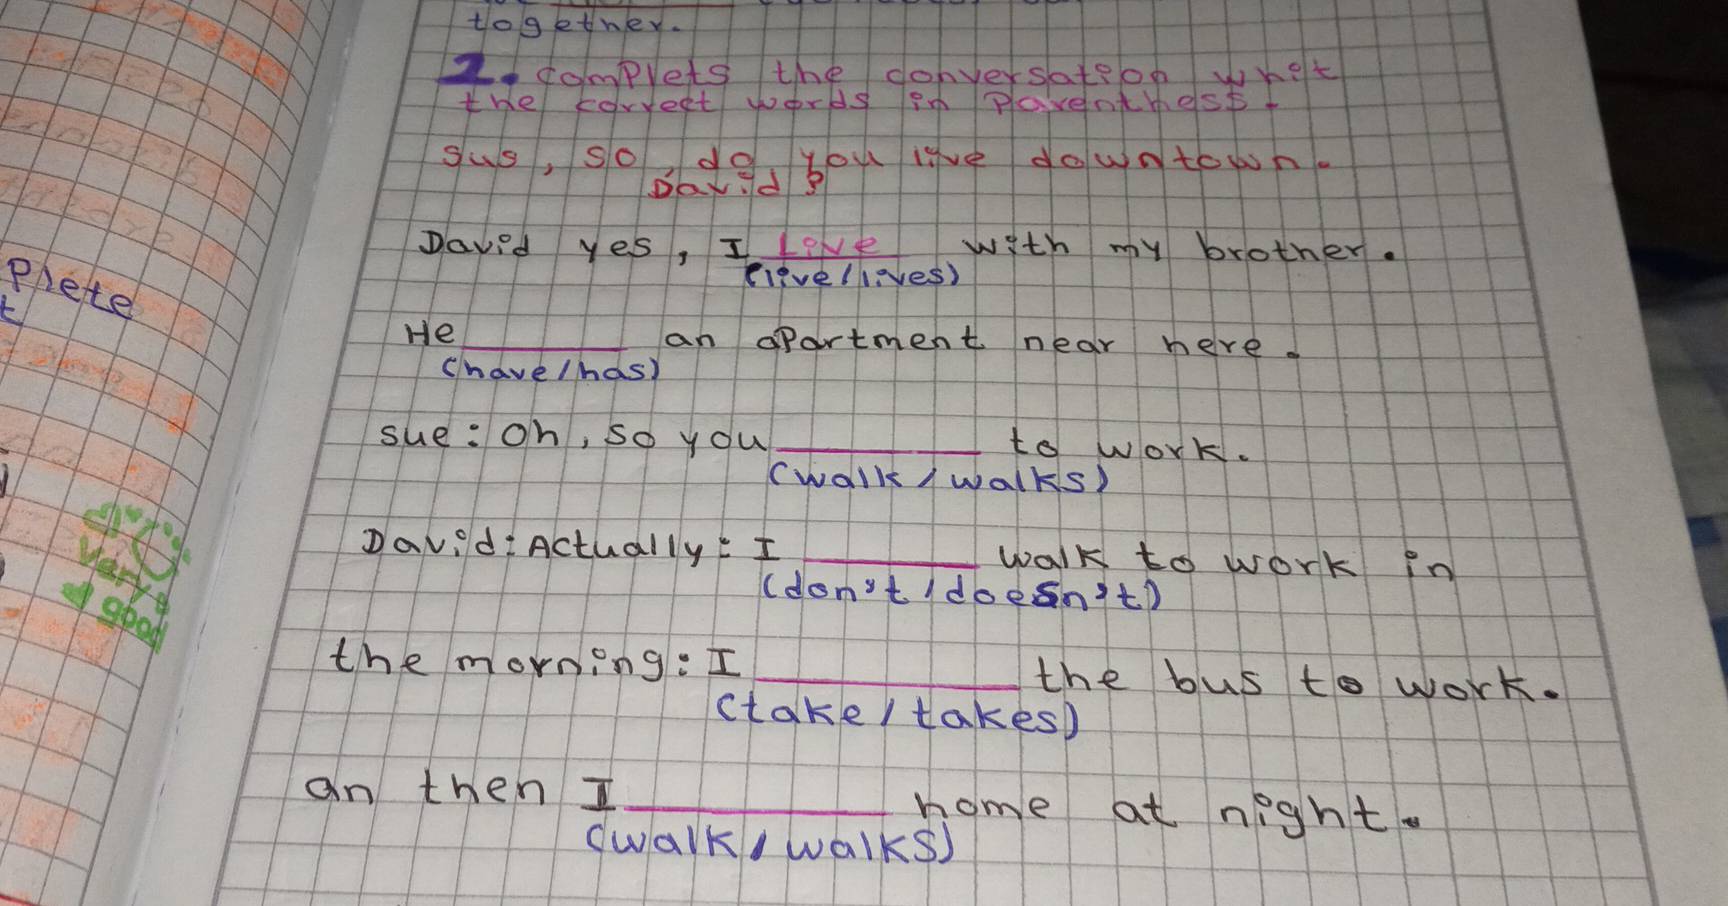 together.
2. complets the conversation whit
the correct words in Parenthess.
sus, so do you live downtown.
David?
David yes, I Live with my brother.
(live/lives)
He ______ an apartment near here.
(have/has)
sue: Oh, so you ______ to work.
(walk/walks)
David: Actually: I ______ walk to work in
(don't/doesn't)
the morning: I ______ the bus to work.
(take/takes)
an then I ______ home at night.
(walk/walks)
Plete
t
very
good